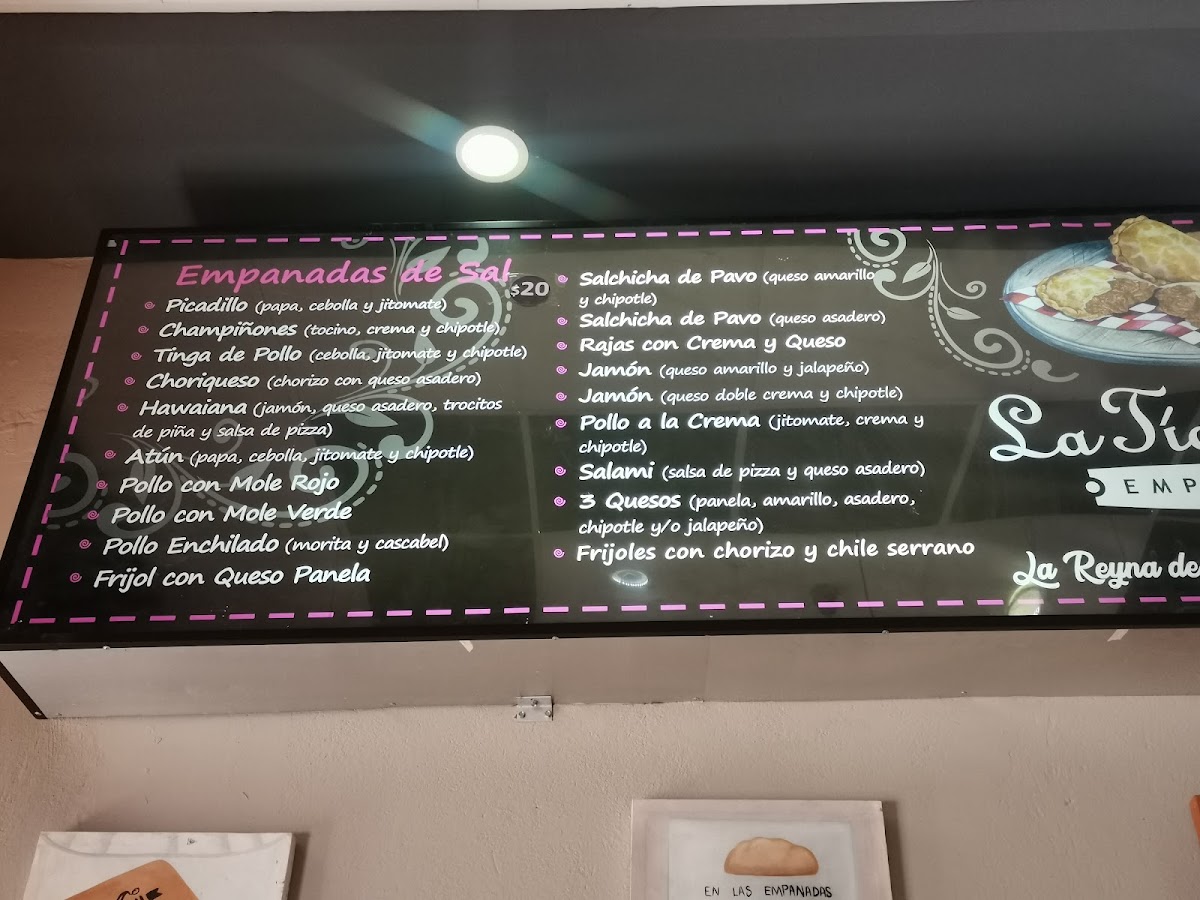 Empanadas de Sal $20
Picadillo (papa, cebolla y jitomate)
Champiñones (tocino, crema y chipotle)
Tinga de Pollo (cebolla, jitomate y chipotle)
Choriqueso (chorizo con queso asadero)
Hawaiana (jamón, queso asadero, trocitos
de piña y salsa de pizza)
Atún (papa, cebolla, jitomate y chipotle)
Pollo con Mole Rojo
Pollo con Mole Verde
Pollo Enchilado (morita y cascabel)
Frijol con Queso Panela
Salchicha de Pavo (queso amarillo
y chipotle)
Salchicha de Pavo (queso asadero)
Rajas con Crema y Queso
Jamón (queso amarillo y jalapeño)
Jamón (queso doble crema y chipotle)
Pollo a la Crema (jitomate, crema y
chipotle)
Salami (salsa de pizza y queso asadero)
3 Quesos (panela, amarillo, asadero,
chipotle y/o jalapeño)
Frijoles con chorizo y chile serrano
La Tía
EMP
La Reyna de
EN LAS EMPANADAS